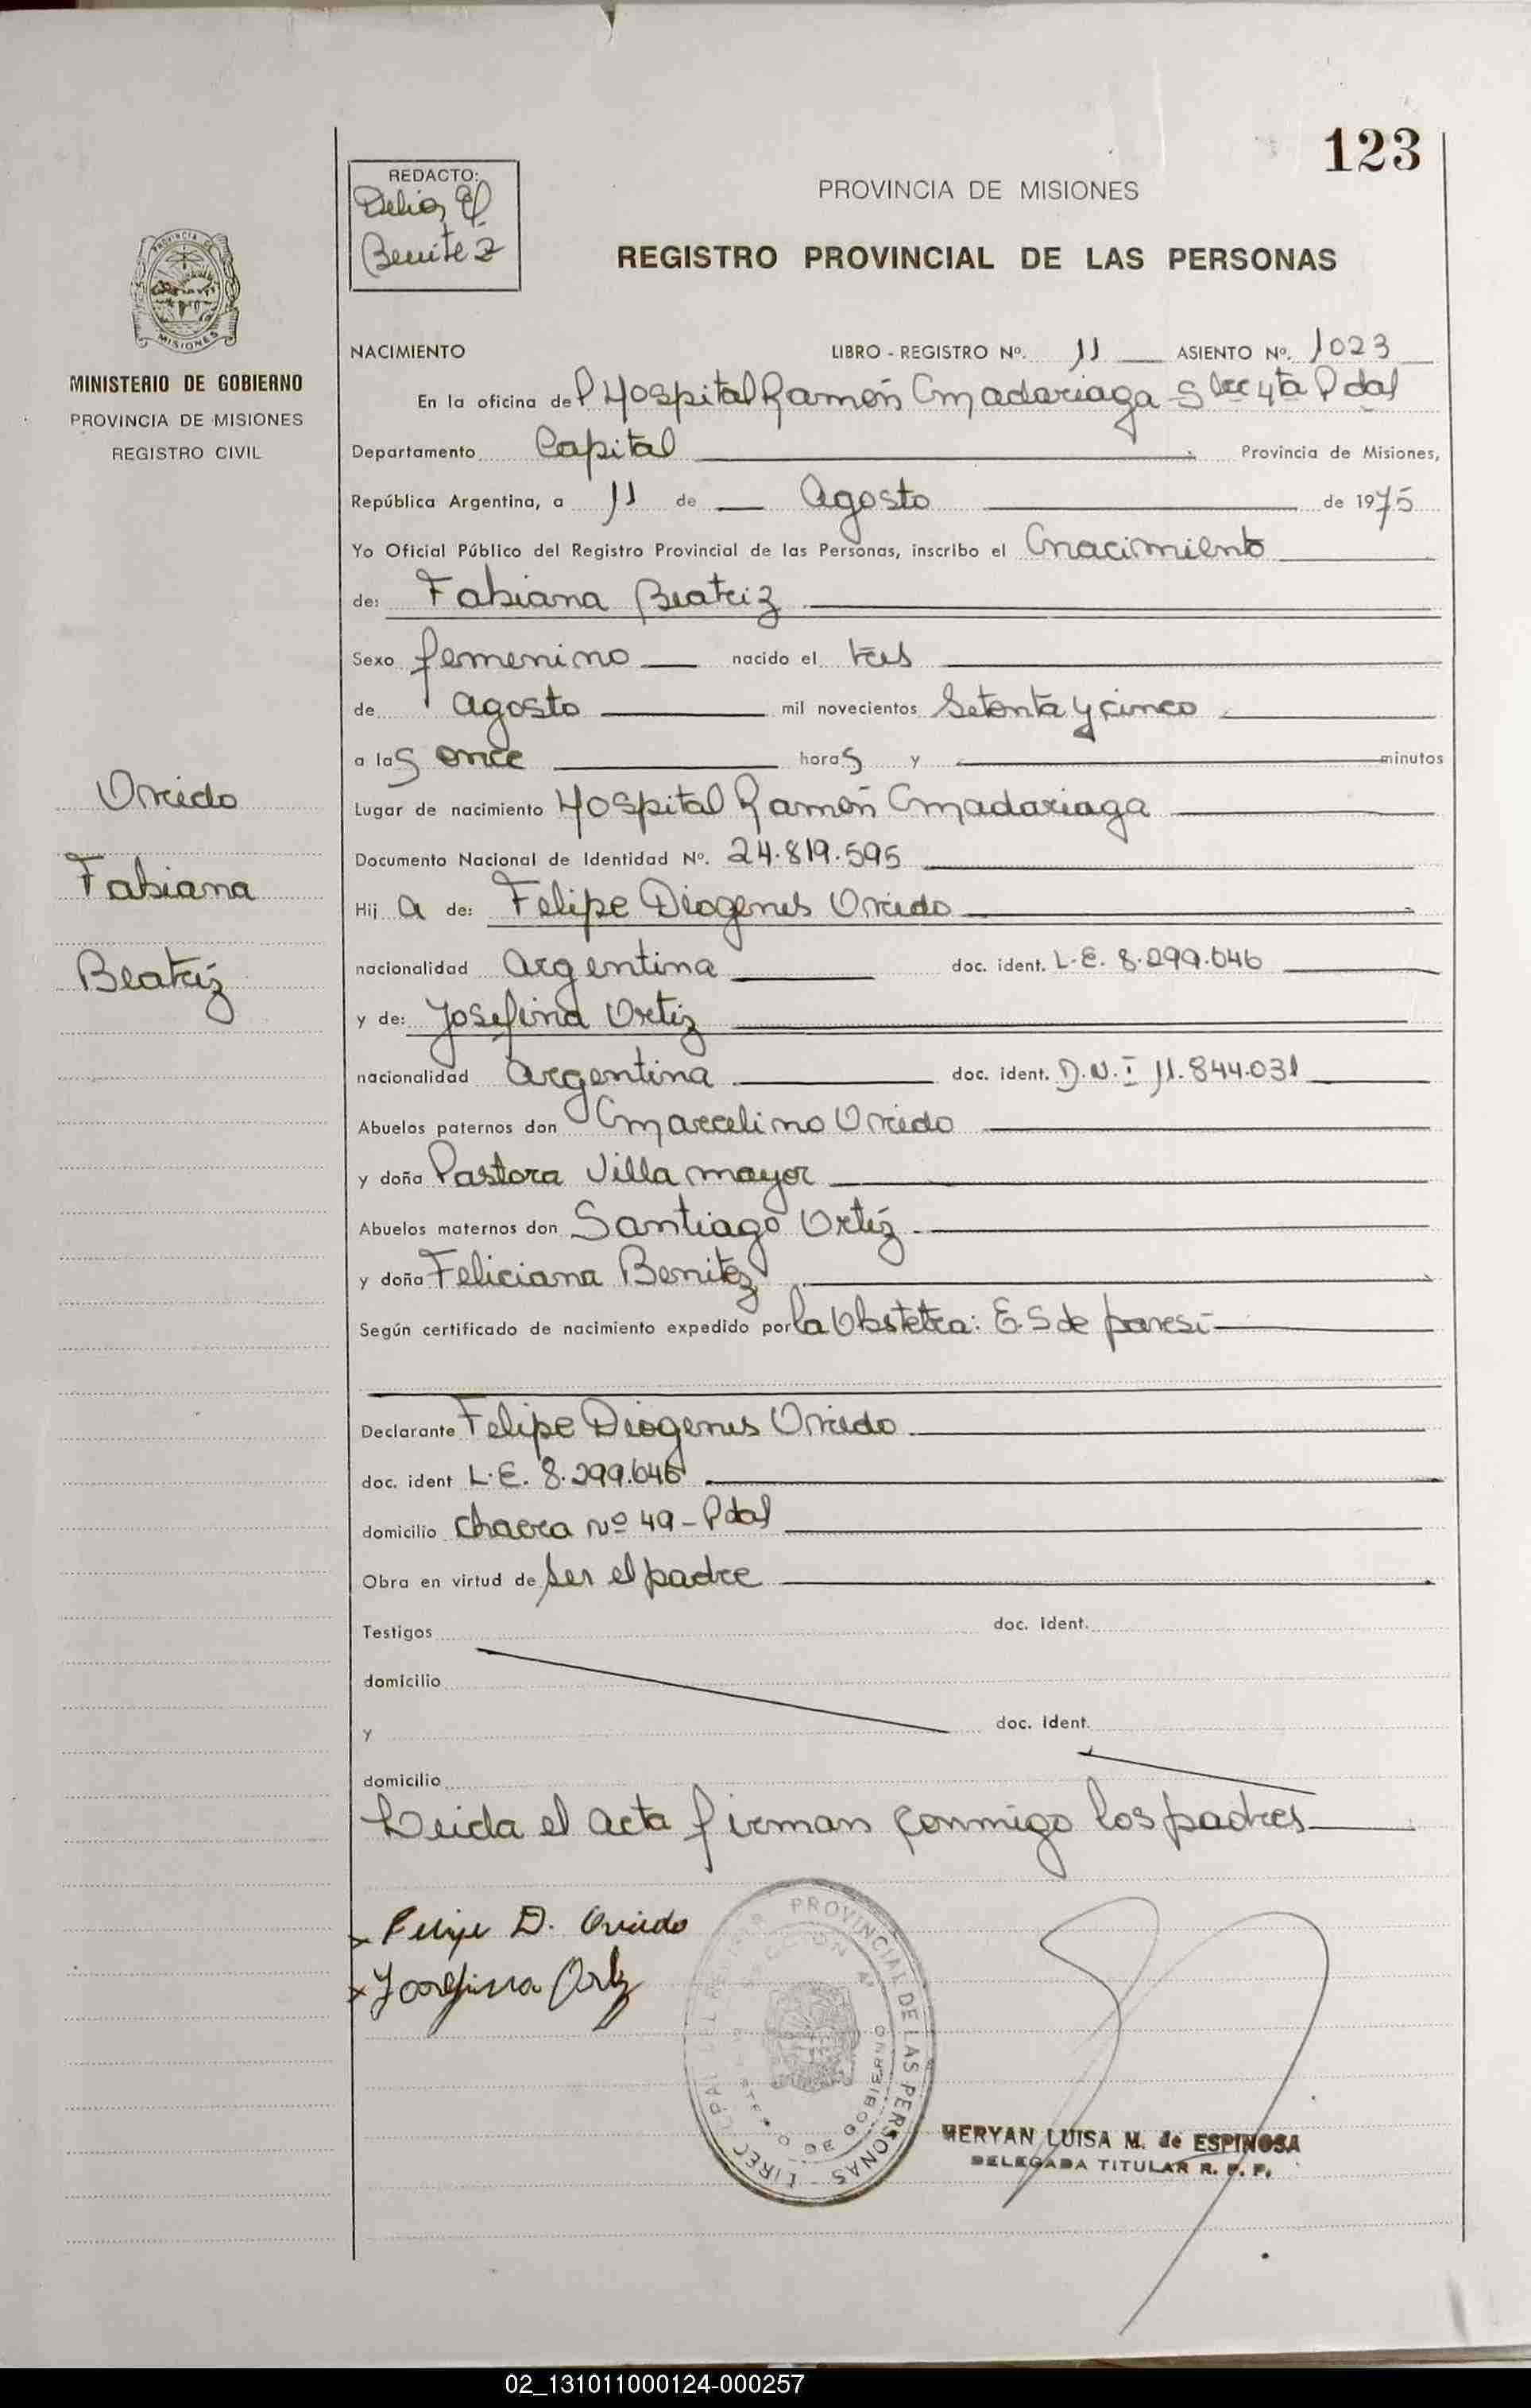 123
REDACTO:
Delia E.
Benitez
PROVINCIA DE MISIONES
REGISTRO PROVINCIAL DE LAS PERSONAS
PROVINCIA DE MISIONES
MINISTERIO DE GOBIERNO
PROVINCIA DE MISIONES
REGISTRO CIVIL
NACIMIENTO LIBRO - REGISTRO Nº. 11 ASIENTO Nº. 1023
En la oficina del Hospital Ramón Madariaga Secc 4ta Pdas
Departamento Capital Provincia de Misiones,
República Argentina, a 11 de Agosto de 1975
Yo Oficial Público del Registro Provincial de las Personas, inscribo el nacimiento
de: Fabiana Beatriz
Sexo femenino nacido el tres
de agosto mil novecientos Setenta y cinco
a las once horas y minutos
Lugar de nacimiento Hospital Ramón Madariaga
Documento Nacional de Identidad Nº. 24.819.595
Hija de: Felipe Diogenes Oviedo
nacionalidad argentina doc. ident. L.E. 8.299.646
y de: Josefina Ortiz
nacionalidad argentina doc. ident. D.N.I 11.844.031
Abuelos paternos don Marcelino Oviedo
y doña Pastora Villamayor
Abuelos maternos don Santiago Ortiz
y doña Feliciana Benitez
Según certificado de nacimiento expedido por la Obstetra: E. S de
Declarante Felipe Diogenes Oviedo
doc. ident L.E. 8.299.646
domicilio chacra nº 49 - Pdas
Obra en virtud de ser el padre
Testigos doc. ident.
domicilio
y doc. ident.
domicilio
Leida el acta firman conmigo los padres
Oviedo
Fabiana
Beatriz
Felipe D. Oviedo
Josefina Ortiz
PROVINCIAL DE LAS PERSONAS
DE GOBIERNO
MERYAN LUISA M. de ESPINOSA
DELEGADA TITULAR R. P. P.
02_131011000124-000257